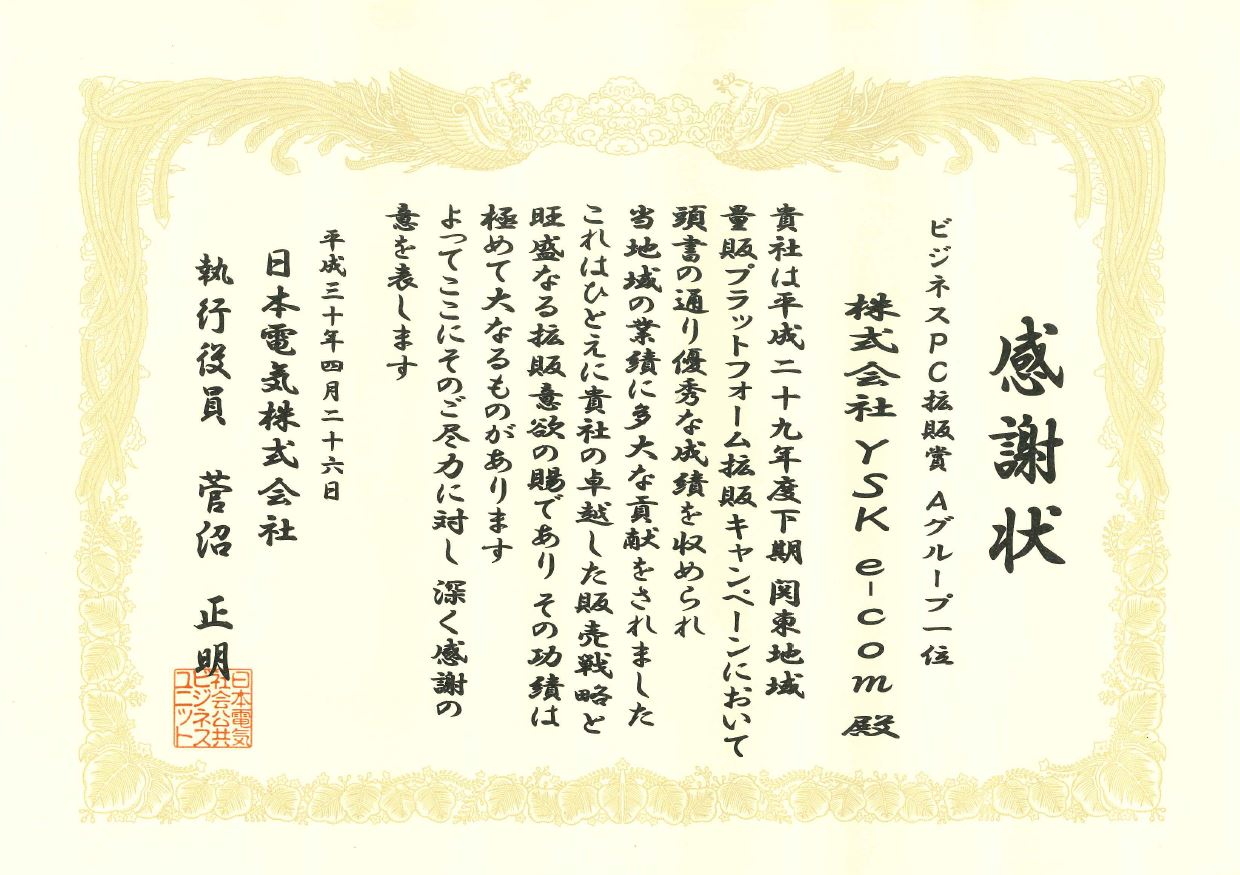 感謝状
ビジネスPC拡販賞 Aグループ一位
株式会社 YSK e-com 殿
貴社は平成二十九年度下期 関東地域
量販プラットフォーム拡販キャンペーンにおいて
頭書の通り優秀な成績を収められ
当地域の業績に多大な貢献をされました
これはひとえに貴社の卓越した販売戦略と
旺盛なる拡販意欲の賜であり その功績は
極めて大なるものがあります
よってここにそのご尽力に対し 深く感謝の
意を表します
平成三十年四月二十六日
日本電気株式会社
執行役員 菅沼 正明
日本電気
社会公共
ビジネス
ユニット